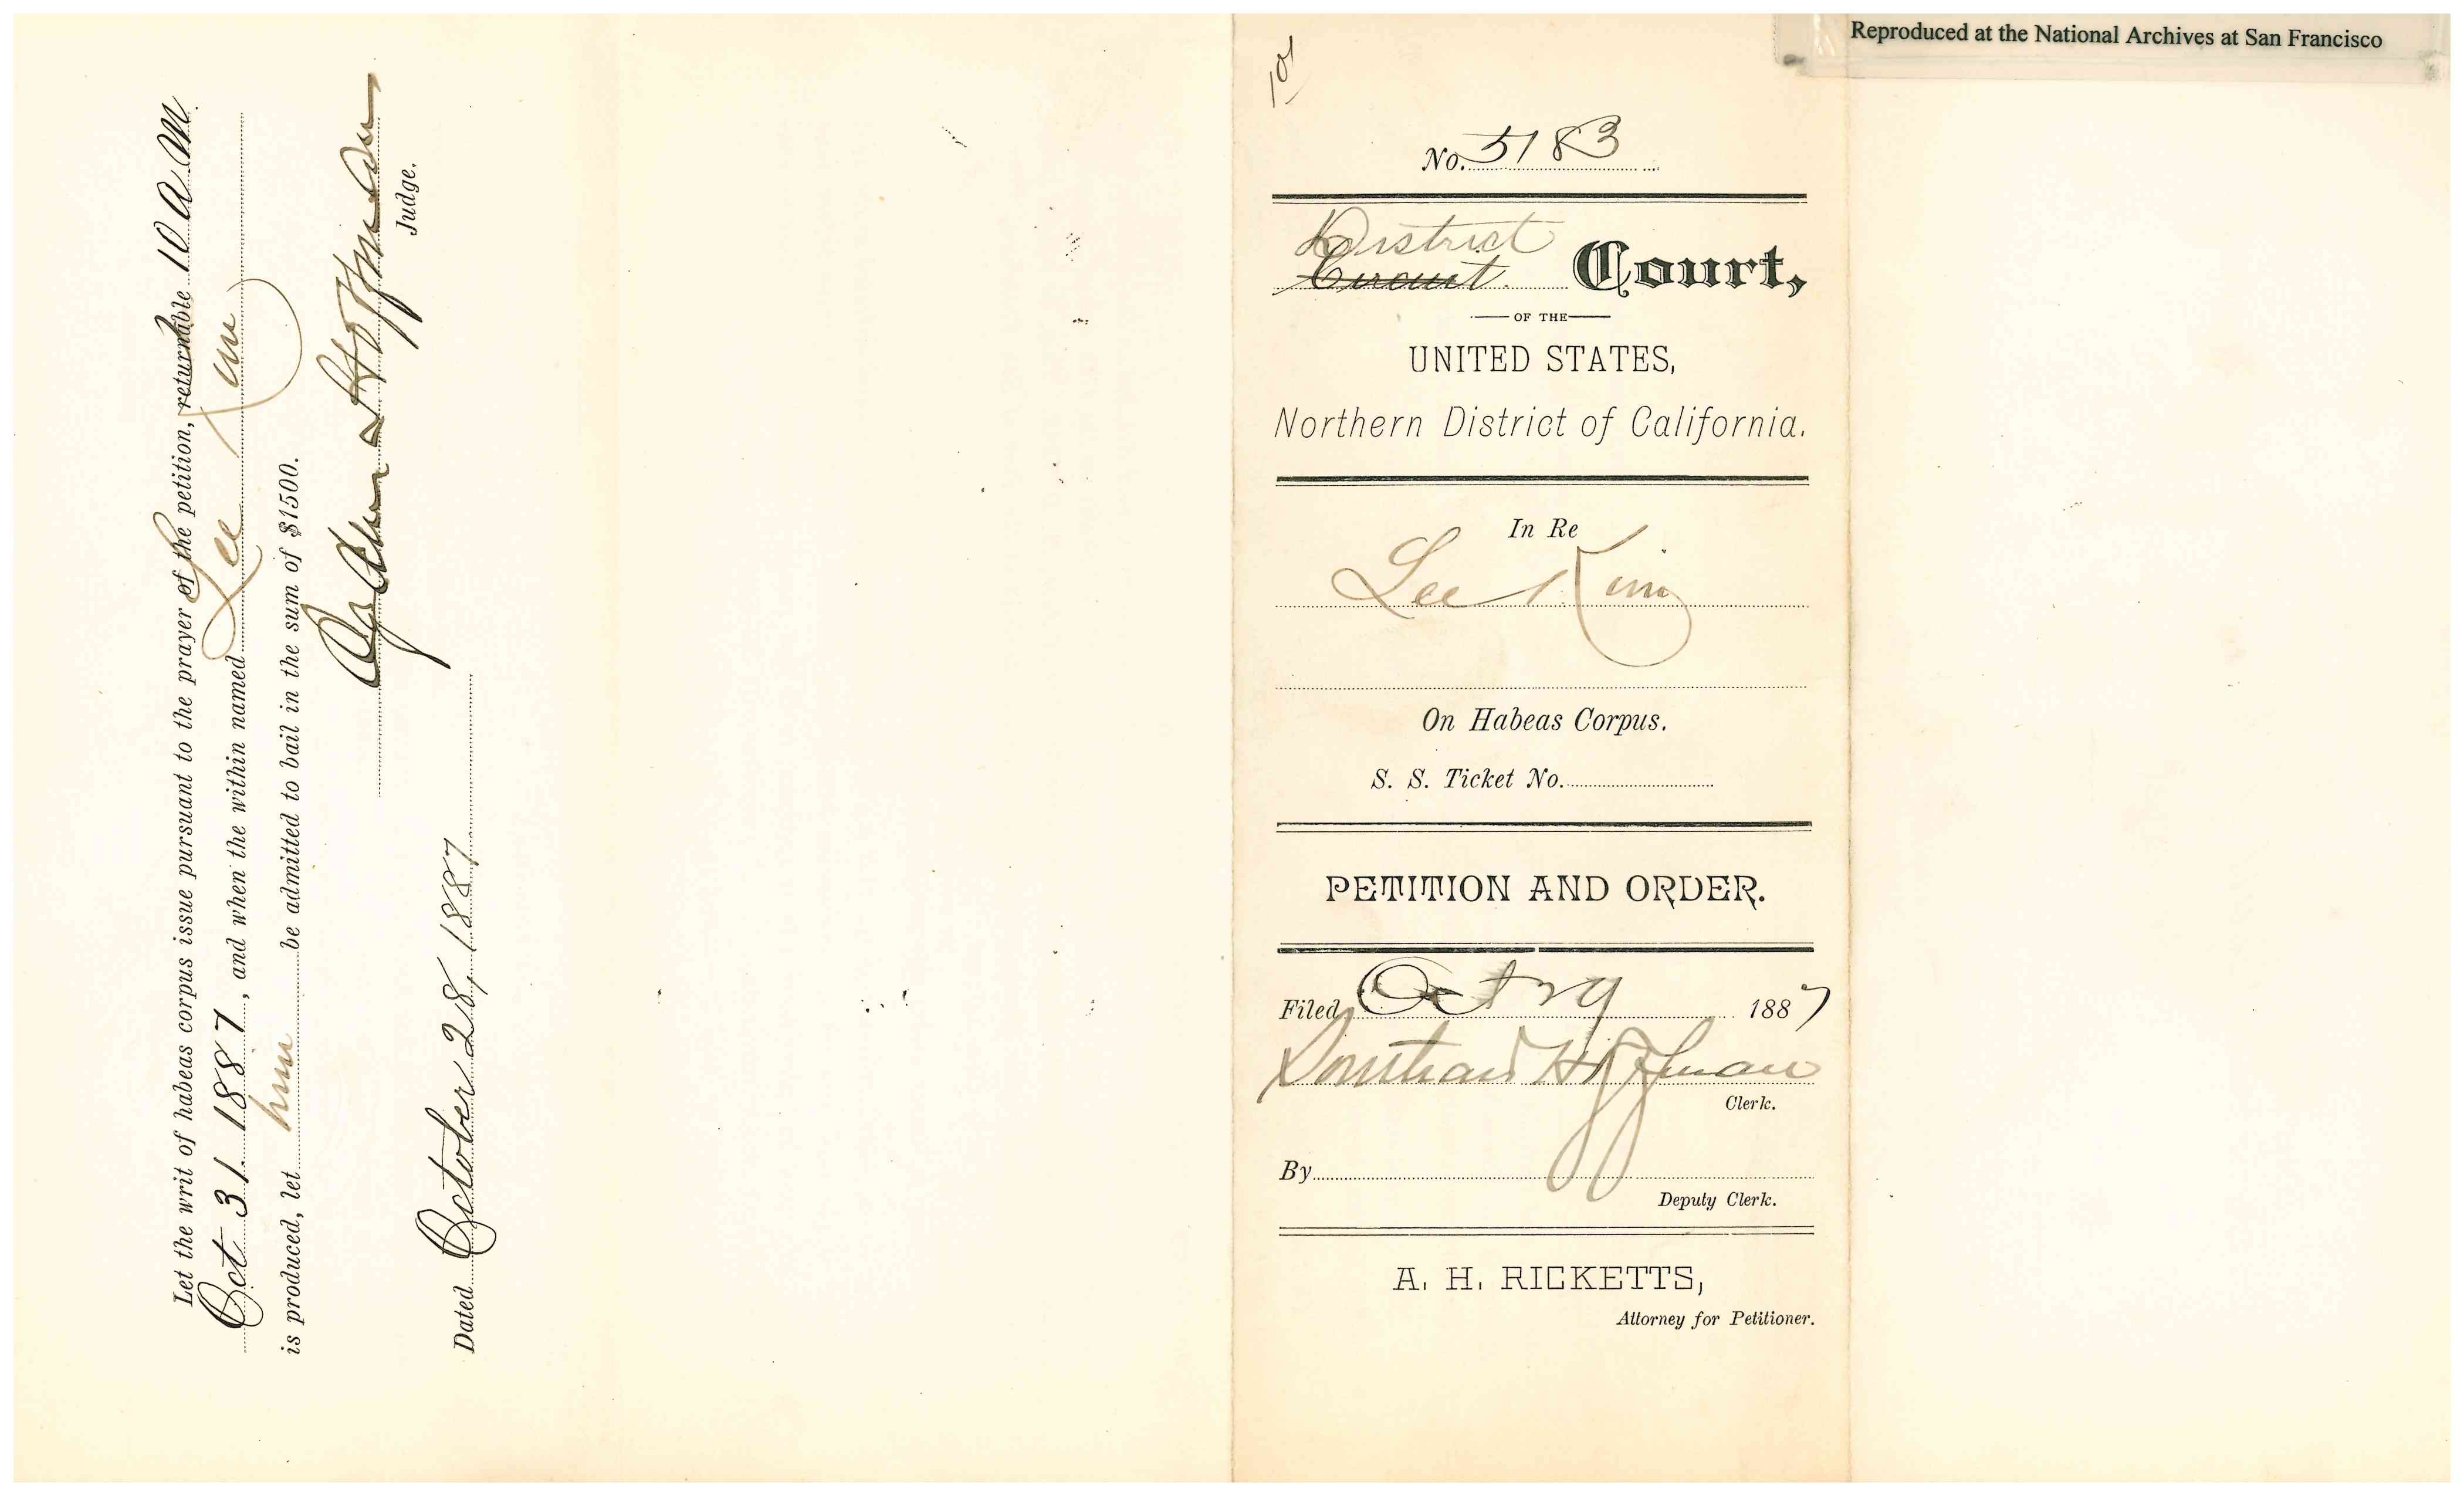 Let the writ of habeas corpus issue pursuant to the prayer of the petition, returnable 10 a. m.
Oct 31. 1887, and when the within named Lee Kim
is produced, let him be admitted to bail in the sum of $1500.
Ogden Hoffman
Judge.
Dated October 28, 1887
Reproduced at the National Archives at San Francisco
No. 5183
District
Circuit Court,
OF THE
UNITED STATES,
Northern District of California.
In Re
Lee Kim
On Habeas Corpus.
S. S. Ticket No.
PETITION AND ORDER.
Filed Oct 29 1887
Southard Hoffman
Clerk.
By
Deputy Clerk.
A. H. RICKETTS,
Attorney for Petitioner.